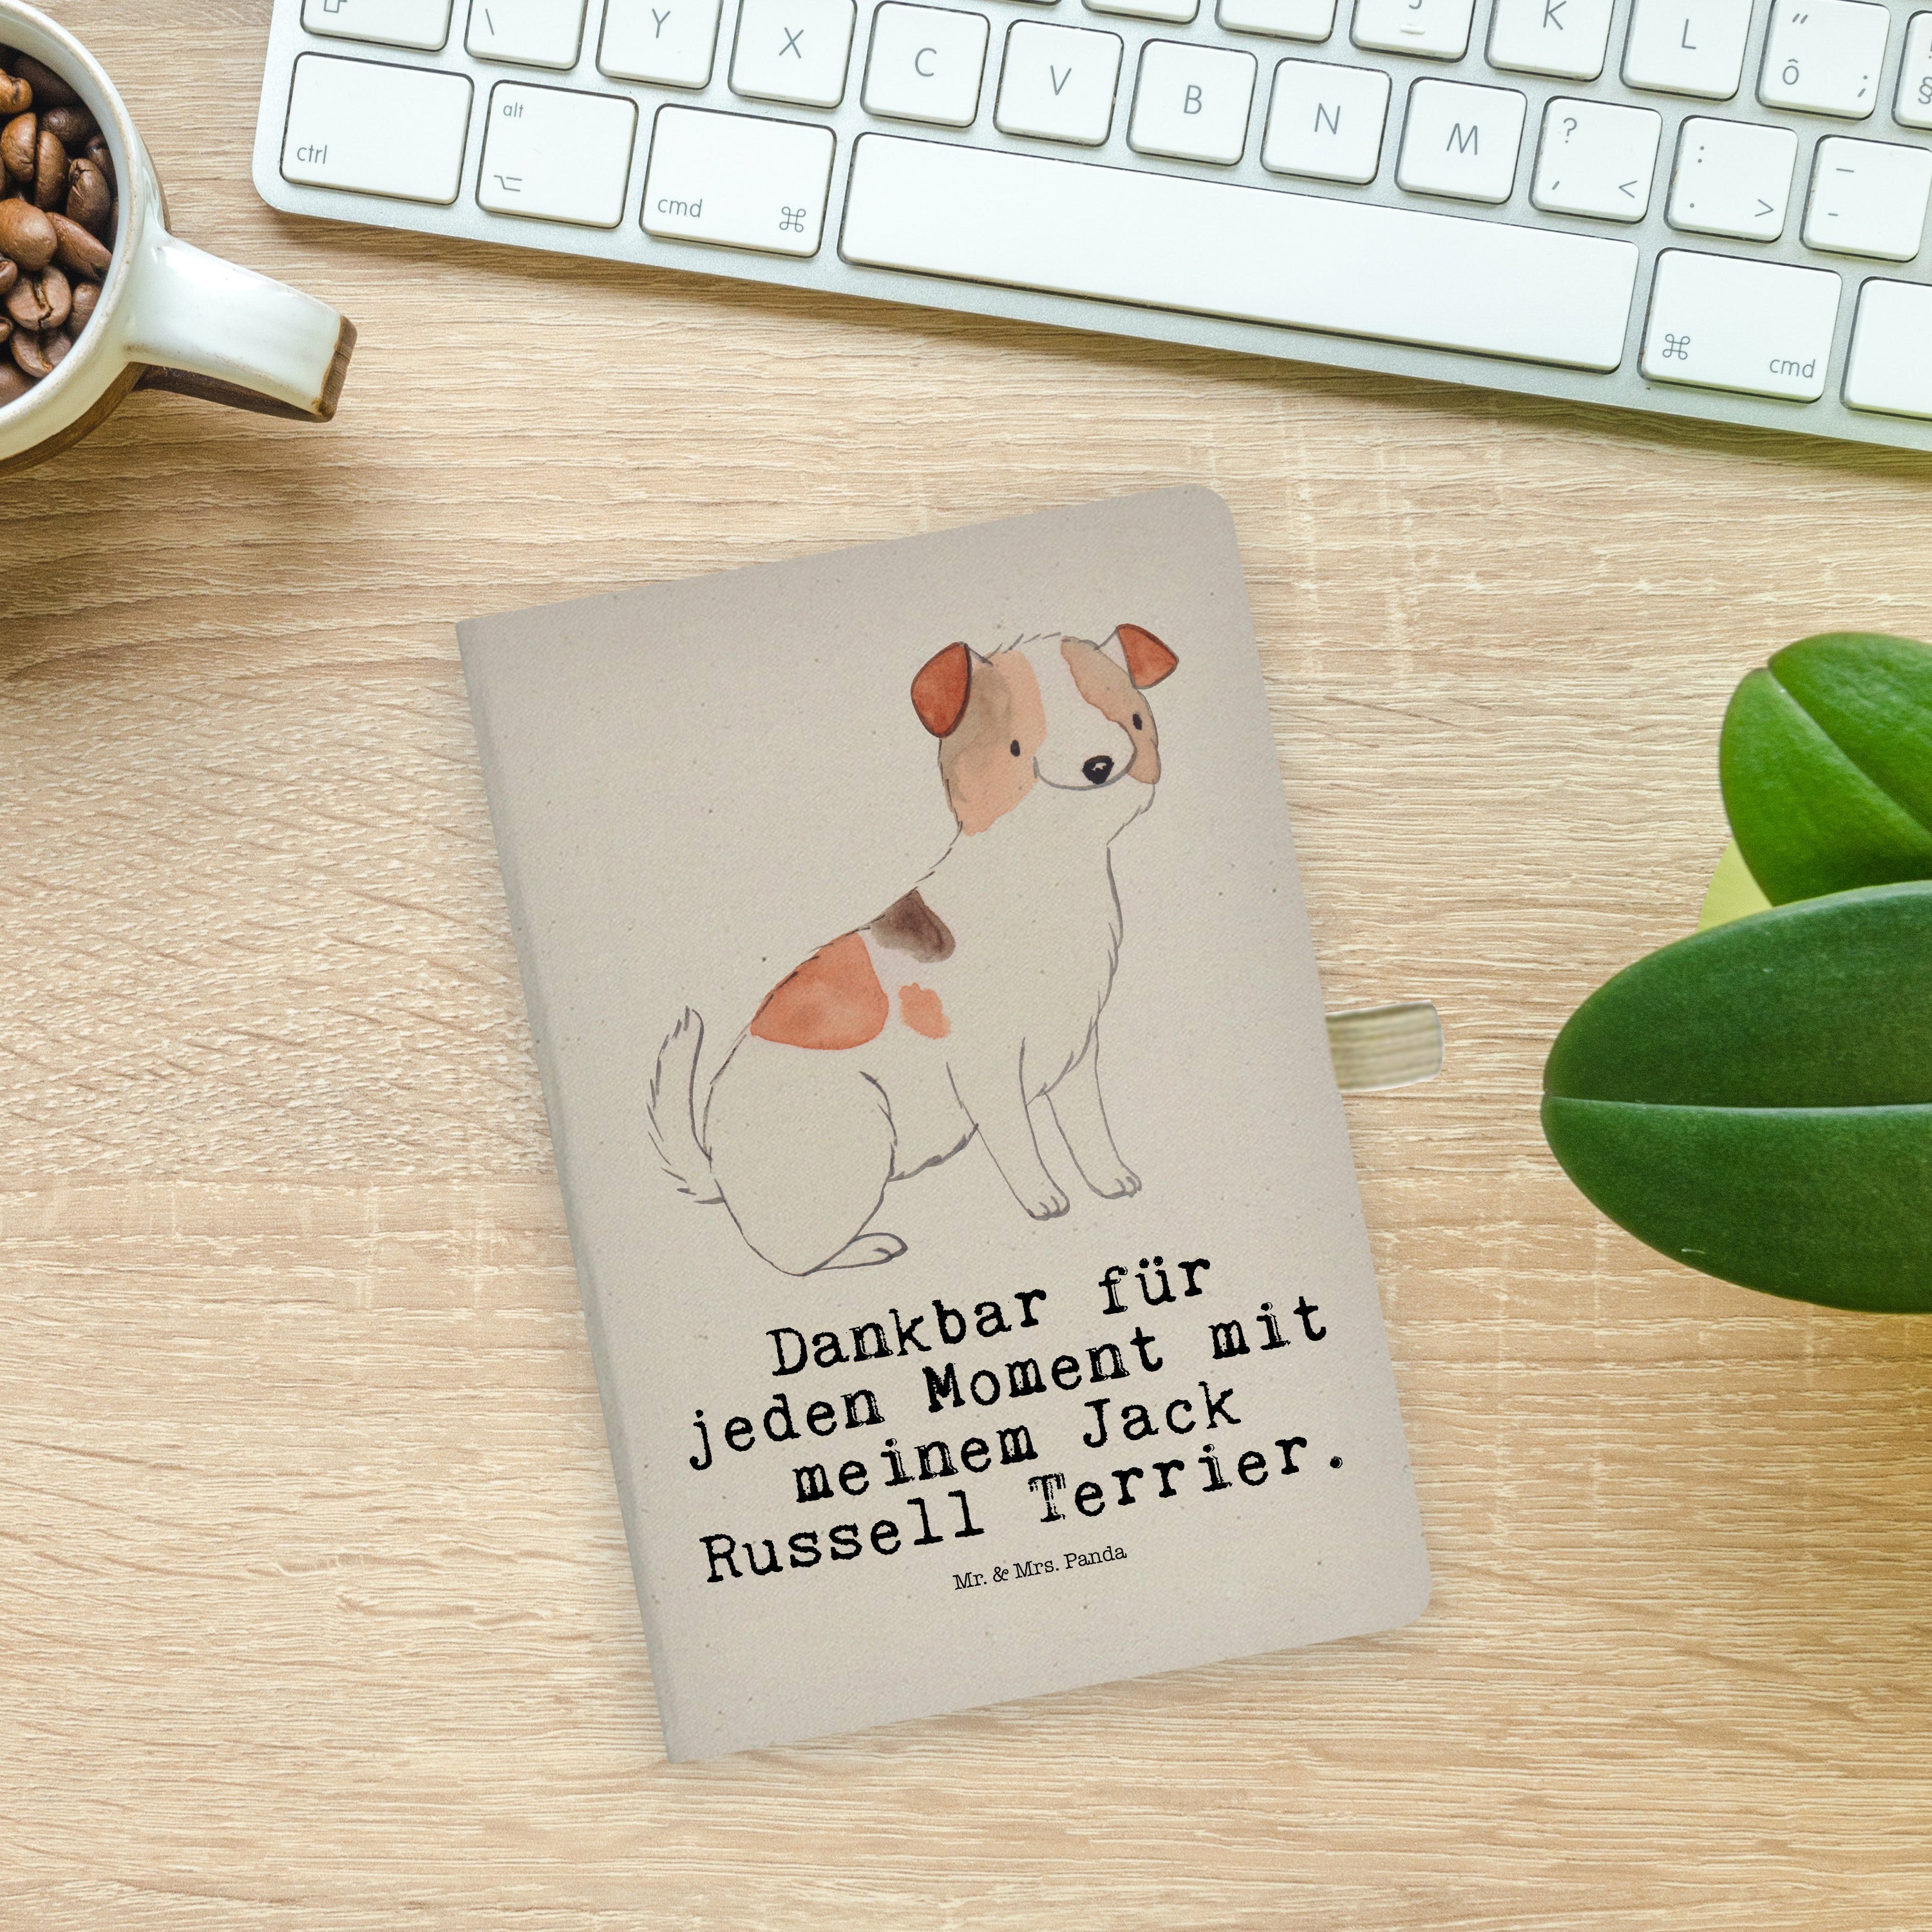 \ Y X C V B N M K L " ô ;
ctrl alt cmd ⌘ ? , < : . > _ -
⌘ cmd
Dankbar für
jeden Moment mit
meinem Jack
Russell Terrier.
Mr. & Mrs. Panda